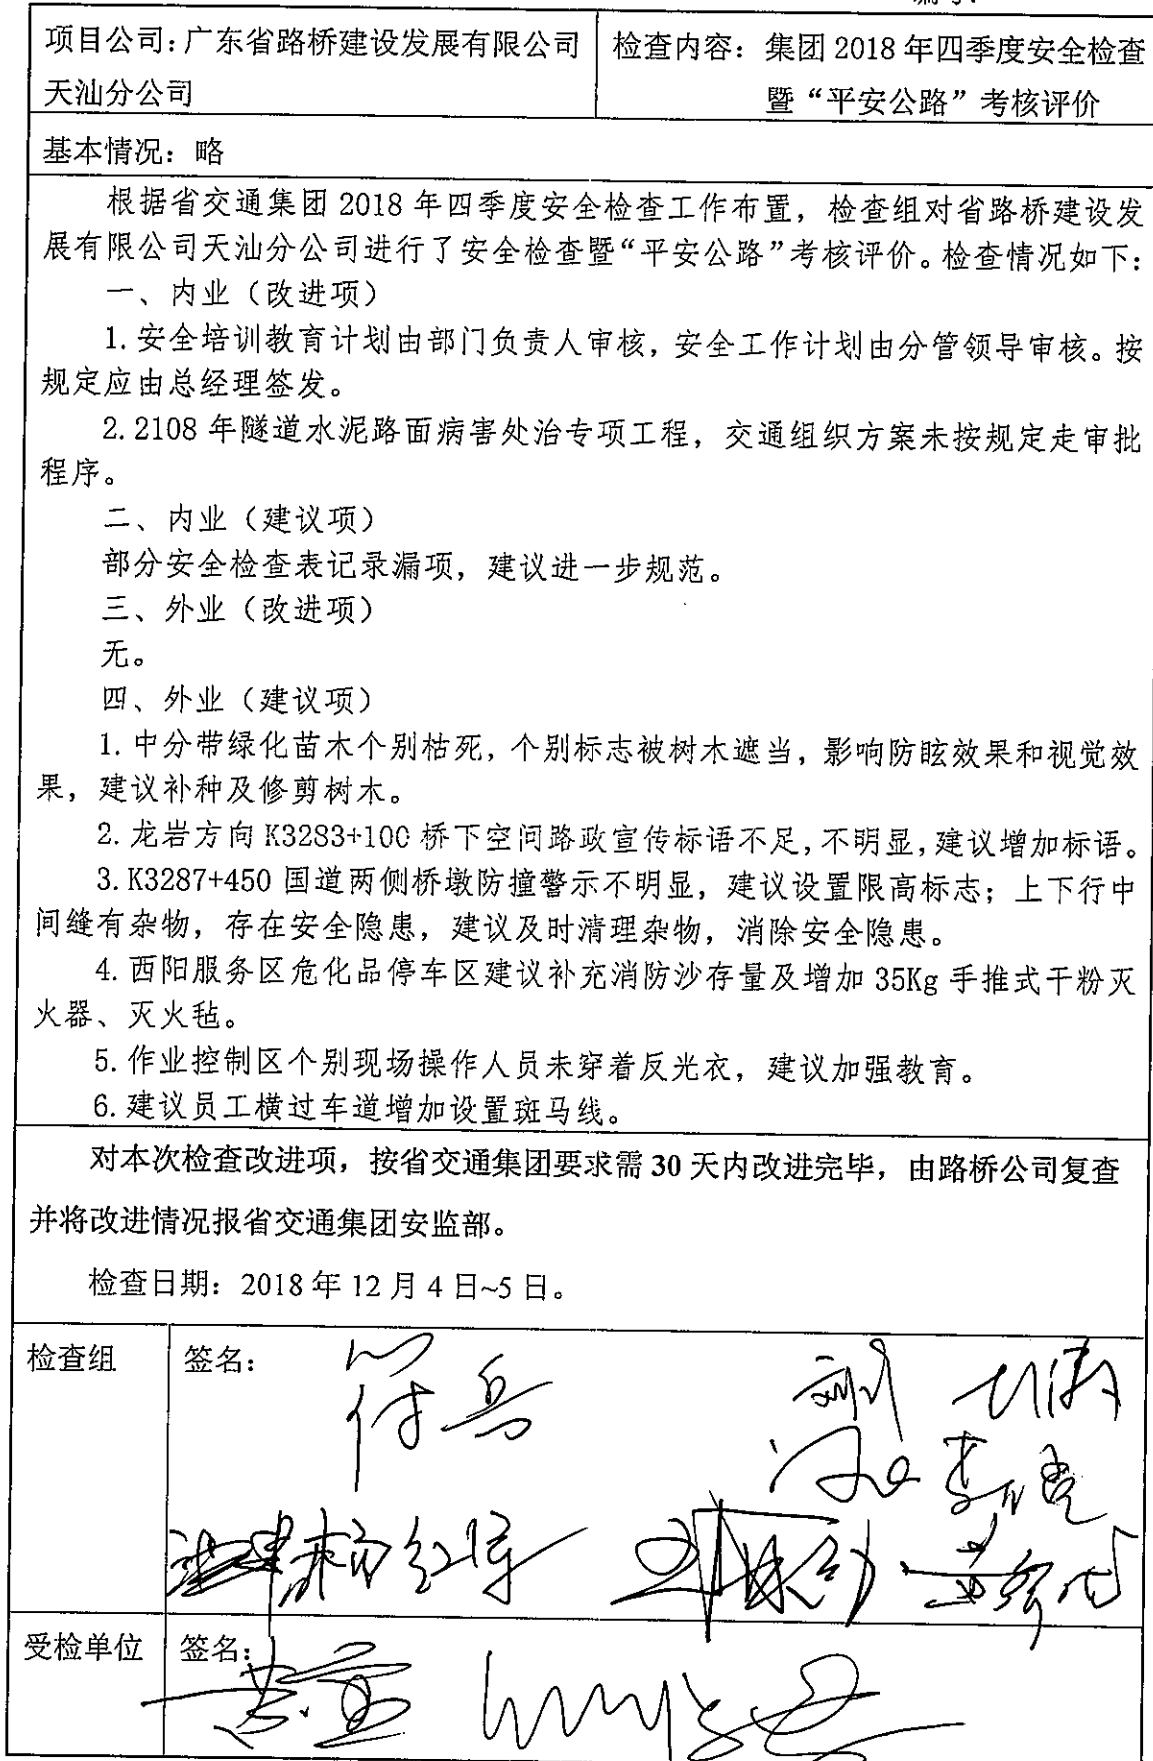 项目公司：广东省路桥建设发展有限公司
天汕分公司
检查内容：集团 2018 年四季度安全检查
暨“平安公路”考核评价
基本情况：略
根据省交通集团 2018 年四季度安全检查工作布置，检查组对省路桥建设发
展有限公司天汕分公司进行了安全检查暨“平安公路”考核评价。检查情况如下：
一、内业（改进项）
1.安全培训教育计划由部门负责人审核，安全工作计划由分管领导审核。按
规定应由总经理签发。
2.2108 年隧道水泥路面病害处治专项工程，交通组织方案未按规定走审批
程序。
二、内业（建议项）
部分安全检查表记录漏项，建议进一步规范。
三、外业（改进项）
无。
四、外业（建议项）
1.中分带绿化苗木个别枯死，个别标志被树木遮当，影响防眩效果和视觉效
果，建议补种及修剪树木。
2.龙岩方向 K3283+100 桥下空间路政宣传标语不足，不明显，建议增加标语。
3.K3287+450 国道两侧桥墩防撞警示不明显，建议设置限高标志；上下行中
间缝有杂物，存在安全隐患，建议及时清理杂物，消除安全隐患。
4.西阳服务区危化品停车区建议补充消防沙存量及增加 35Kg 手推式干粉灭
火器、灭火毡。
5.作业控制区个别现场操作人员未穿着反光衣，建议加强教育。
6.建议员工横过车道增加设置斑马线。
对本次检查改进项，按省交通集团要求需 30 天内改进完毕，由路桥公司复查
并将改进情况报省交通集团安监部。
检查日期：2018 年 12 月 4 日~5 日。
检查组
签名：
受检单位
签名：